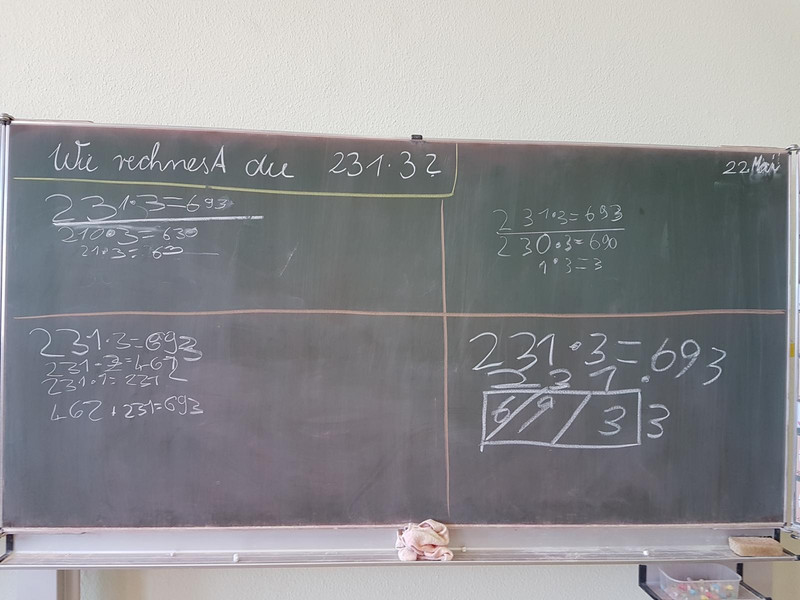 Wie rechnest du 231·3?
22 Mai
231·3=693
210·3=630
21·3=60
231·3=693
230·3=690
1·3=3
231·3=693
231·2=462
231·1=231
462+231=693
231·3=693
2 3 1 ·
6 9 3 3